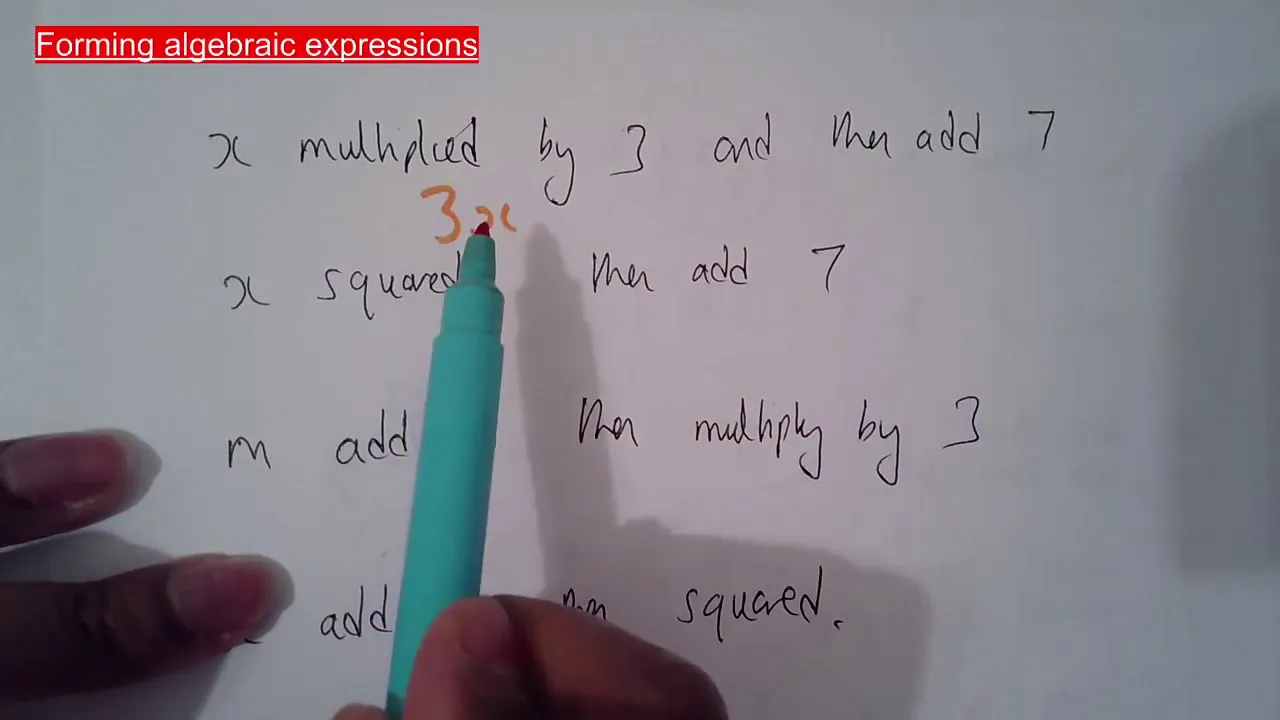 Forming algebraic expressions
x multiplied by 3 and then add 7
3x
x squared then add 7
m add then multiply by 3
add squared.